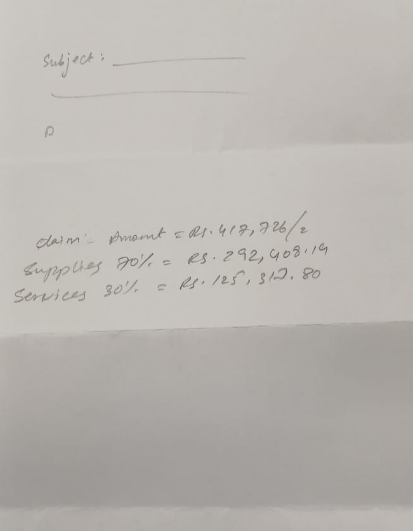 Subject:
D
Claim:- Amount = Rs. 417,726/2
Supplies 70% = Rs. 292,408.19
Services 30% = Rs. 125,317.80